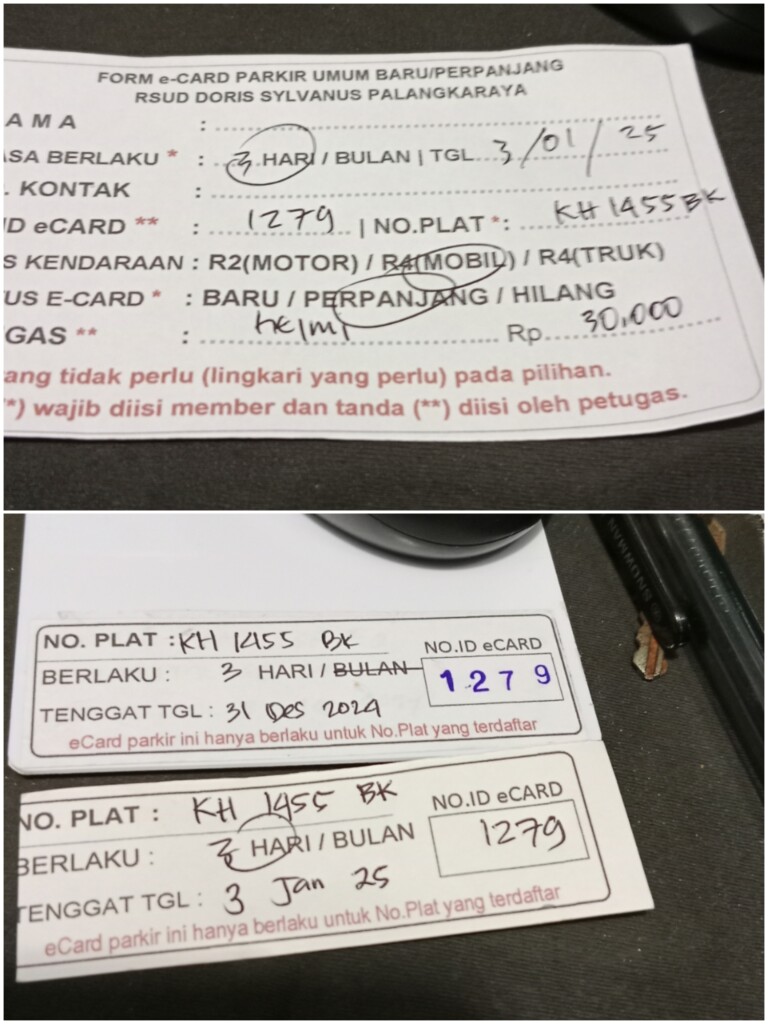 FORM e-CARD PARKIR UMUM BARU/PERPANJANG
RSUD DORIS SYLVANUS PALANGKARAYA
AMA :
ASA BERLAKU * : 3 HARI / BULAN | TGL 3/01/25
. KONTAK :
ID eCARD ** : 1279 | NO.PLAT *: KH 1455 BK
S KENDARAAN : R2(MOTOR) / R4(MOBIL) / R4(TRUK)
US E-CARD * : BARU / PERPANJANG / HILANG
GAS ** : helmi Rp. 30,000
ang tidak perlu (lingkari yang perlu) pada pilihan.
*) wajib diisi member dan tanda (**) diisi oleh petugas.
NO. PLAT : KH 1455 BK
NO.ID eCARD
BERLAKU : 3 HARI / BULAN
1279
TENGGAT TGL : 31 Des 2024
eCard parkir ini hanya berlaku untuk No.Plat yang terdaftar
NO. PLAT : KH 1455 BK
NO.ID eCARD
BERLAKU : 3 HARI / BULAN
1279
TENGGAT TGL : 3 Jan 25
eCard parkir ini hanya berlaku untuk No.Plat yang terdaftar
SNOWMAN